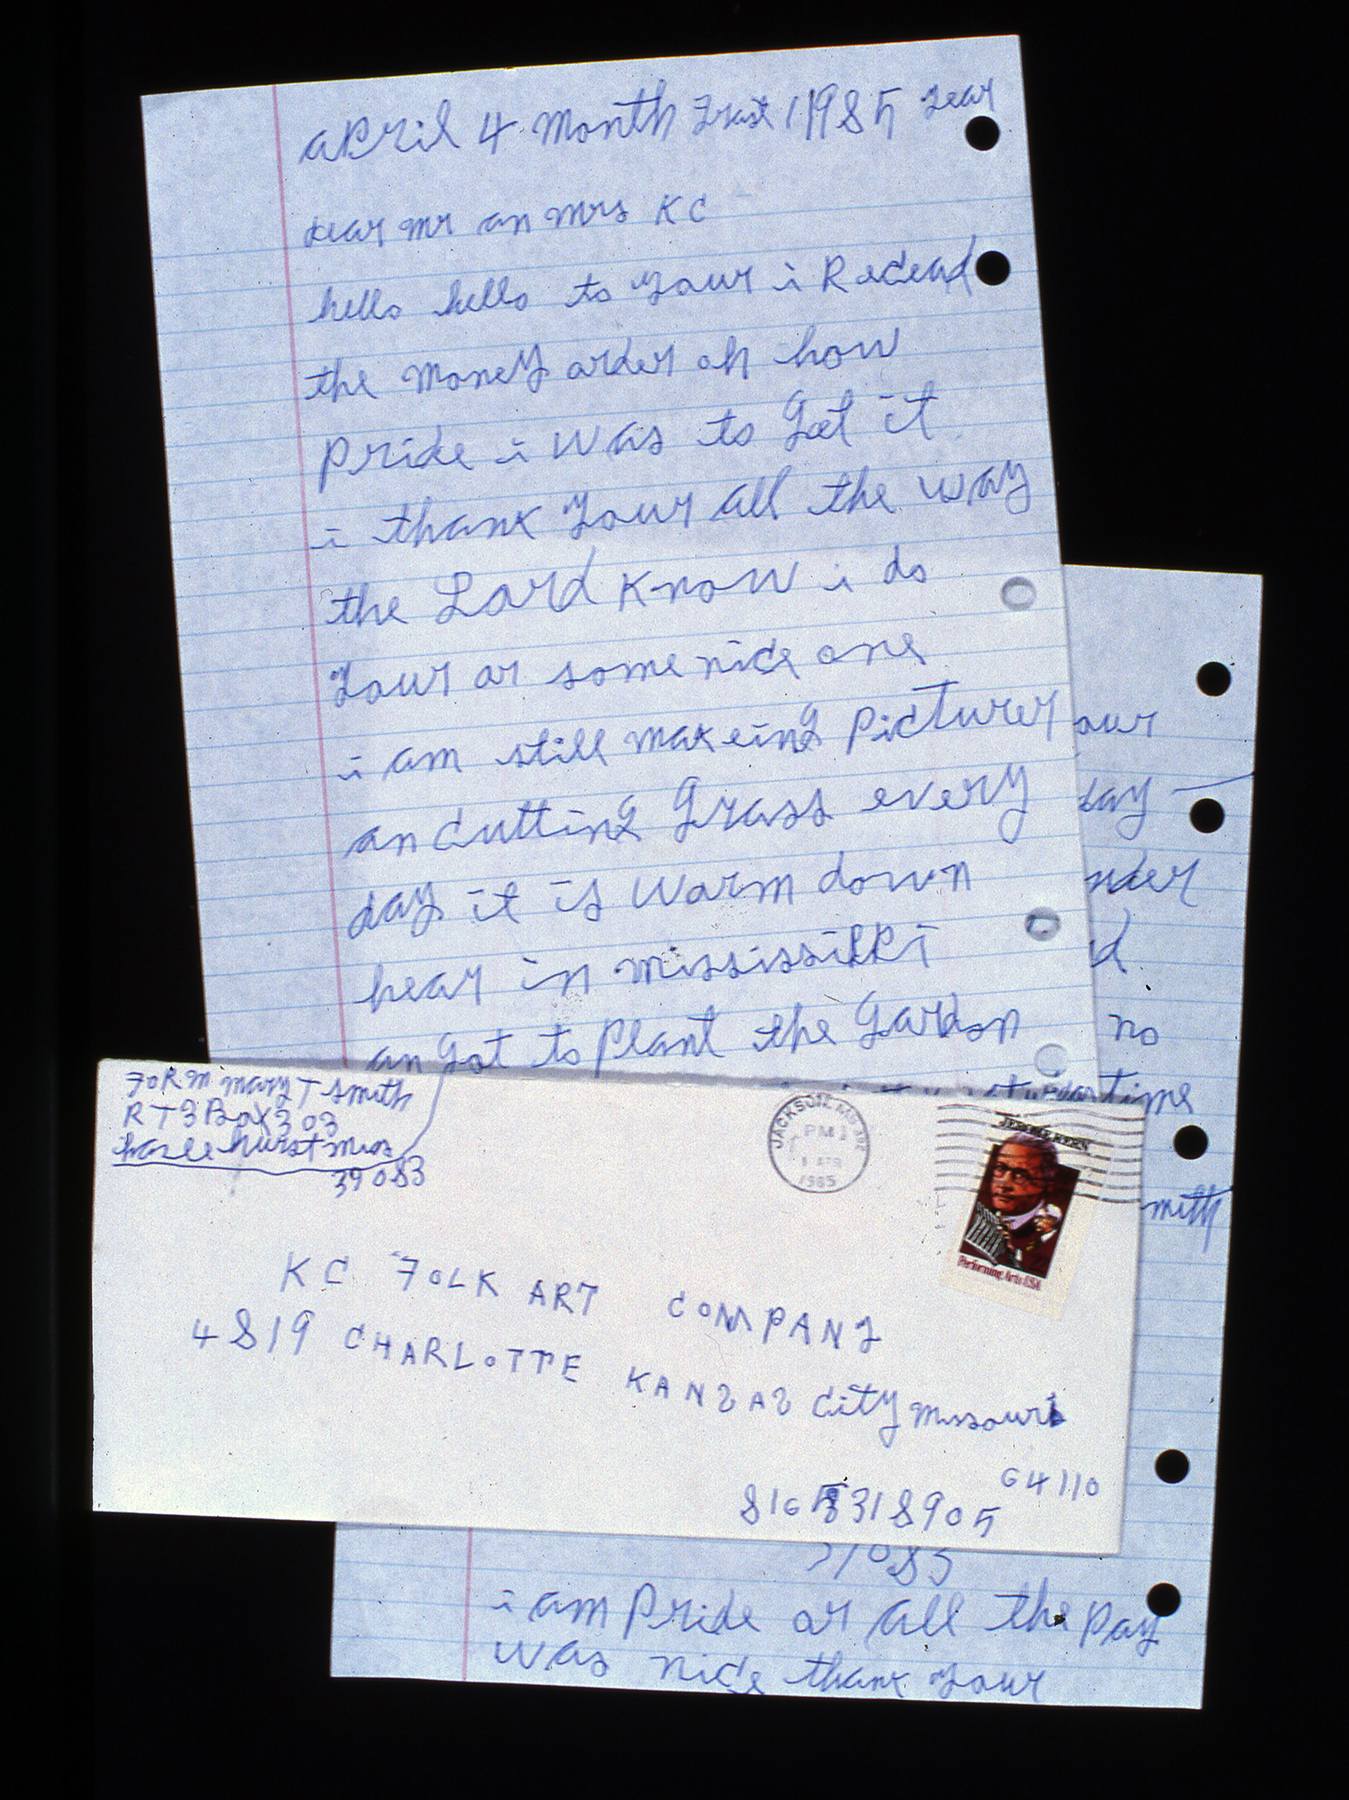 april 4 month frast 1 1985 year
dear mr an mrs KC
hello hello to your i Recead
the money order oh how
pride i was to get it
i thank your all the way
the Lord know i do
your ar some nice one
i am still makeing Picturer
an cutting grass every
day it is warm down
hear in mississippi
an got to Plant the gardon
our
day
nder
d
no
time
mith
FoRm mary T smith
RT3 Box 303
hazlehurst miss
39083
JACKSON, MS
PM
1 APR
1985
JEROME KERN
Performing Arts USA
KC FOLK ART COMPANY
4819 CHARLOTTE KANSAS city missouri
64110
816 5318905
i am Pride ar all the Pay
was nice thank your